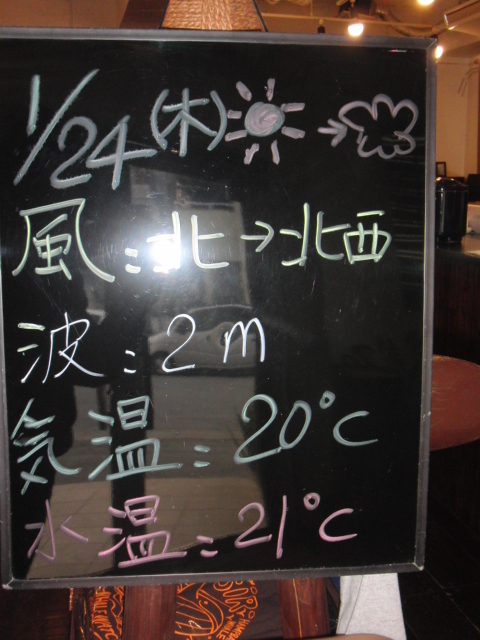 1/24(木) →
風:北→北西
波:2m
気温:20℃
水温:21℃